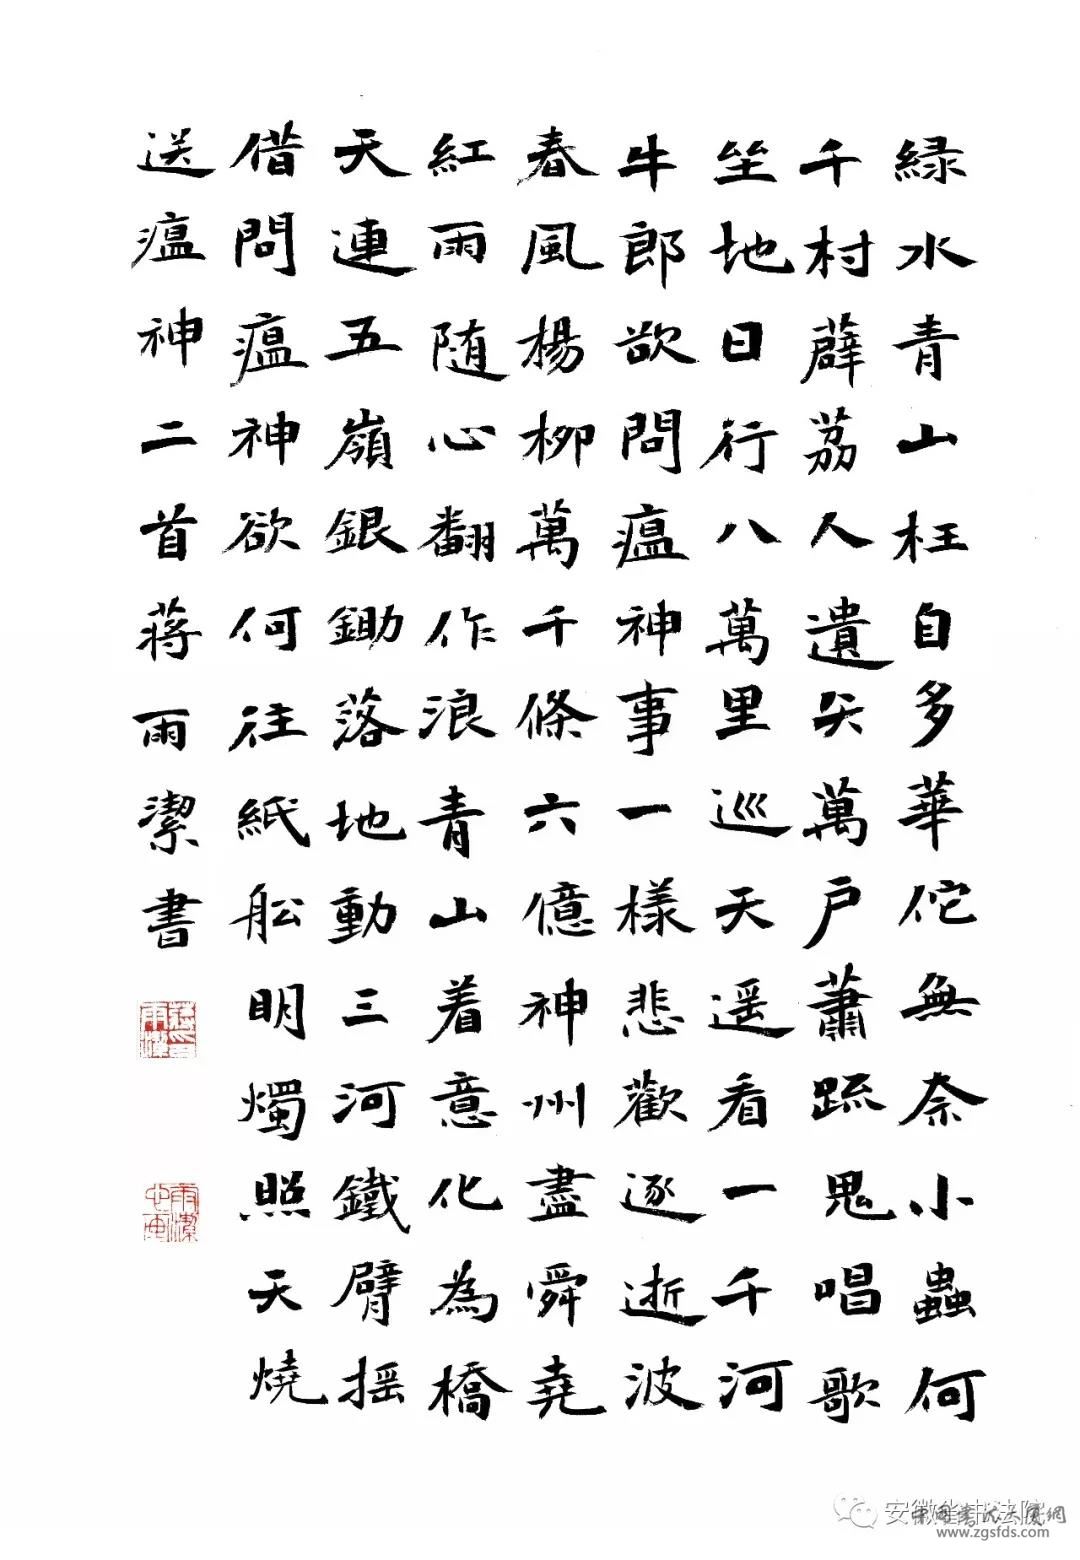 緑水青山枉自多華佗無奈小蟲何
千村薜荔人遺矢萬戶蕭疏鬼唱歌
坐地日行八萬里巡天遥看一千河
牛郎欲問瘟神事一樣悲歡逐逝波
春風楊柳萬千條六億神州盡舜堯
紅雨随心翻作浪青山着意化為橋
天連五嶺銀鋤落地動三河鐵臂摇
借問瘟神欲何往紙船明燭照天燒
送瘟神二首蔣雨潔書
安徽省书法院
www.zgsfds.com